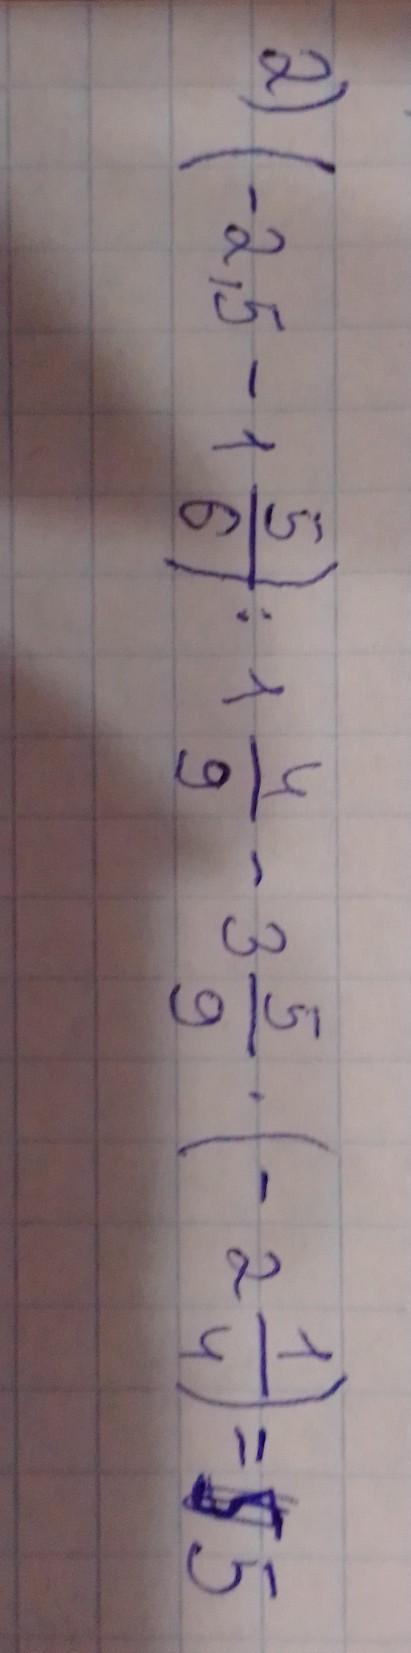 2) (-2,5 - 1 5/6) : 1 4/9 - 3 5/9 · (-2 1/4) = 5